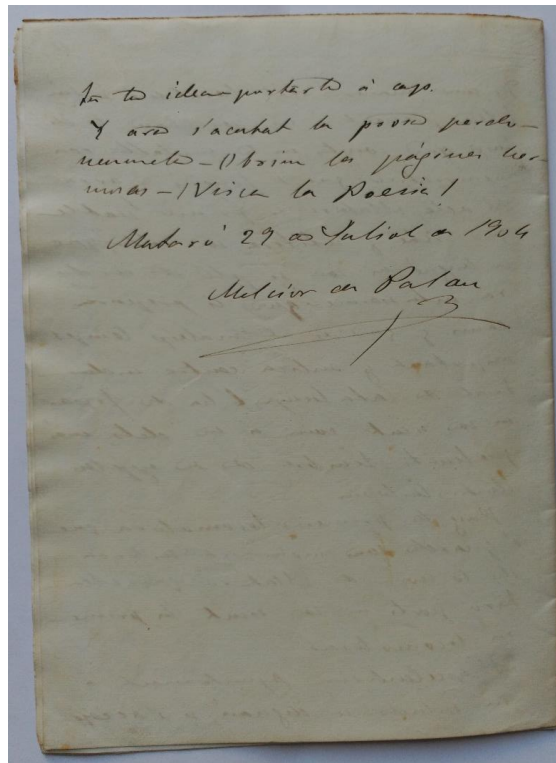 ta te idea portarte á cap.
Y ara s'acabat la prosa perdo-
nemmela - Obrim las páginas her-
mosas - ¡Visca la Poesia!
Mataró 29 de Juliol de 1904
Melcior de Palau